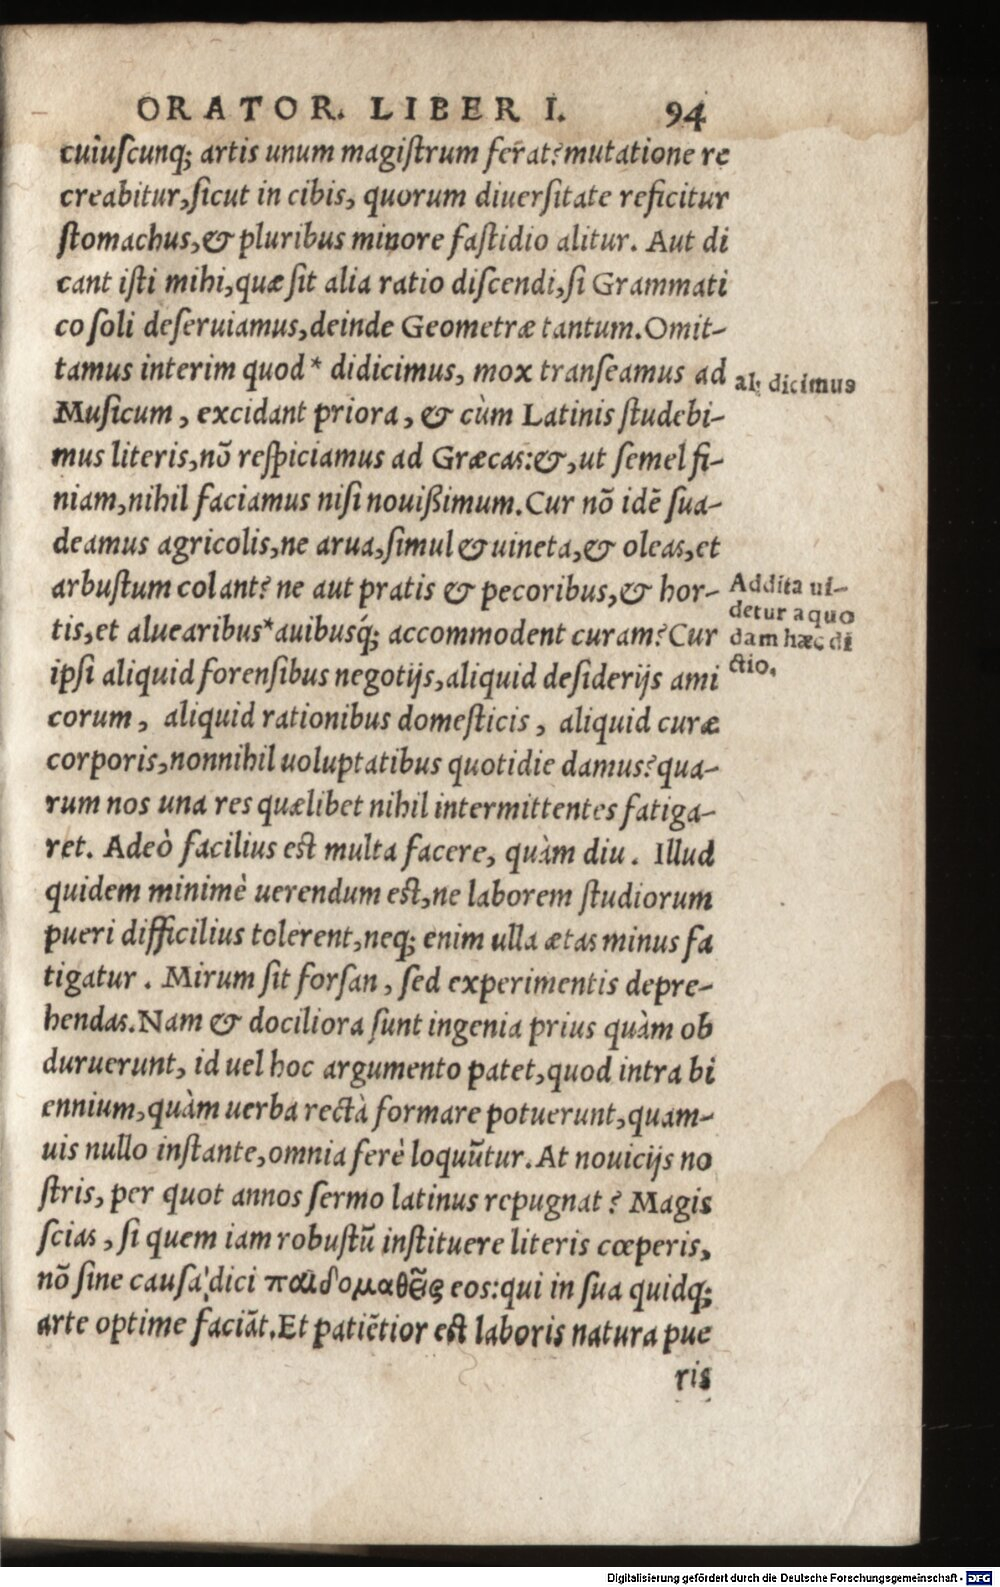 ORATOR. LIBER I. 94
cuiuſcunq; artis unum magiſtrum ferat? mutatione re
creabitur, ſicut in cibis, quorum diuerſitate reficitur
ſtomachus, & pluribus minore faſtidio alitur. Aut di
cant iſti mihi, quæ ſit alia ratio diſcendi, ſi Grammati
co ſoli deſeruiamus, deinde Geometræ tantum. Omit-
tamus interim quod* didicimus, mox tranſeamus ad
al; dicimus
Muſicum, excidant priora, & cùm Latinis ſtudebi-
mus literis, nō reſpiciamus ad Græcas: &, ut ſemel fi-
niam, nihil faciamus niſi nouißimum. Cur nō idē ſua-
deamus agricolis, ne arua, ſimul & uineta, & oleas, et
arbuſtum colant? ne aut pratis & pecoribus, & hor-
tis, et aluearibus* auibusq́; accommodent curam? Cur
Addita ui-
detur a quo
dam hæc di
ctio.
ipſi aliquid forenſibus negotijs, aliquid deſiderijs ami
corum, aliquid rationibus domeſticis, aliquid curæ
corporis, nonnihil uoluptatibus quotidie damus? qua-
rum nos una res quælibet nihil intermittentes fatiga-
ret. Adeò facilius eſt multa facere, quàm diu. Illud
quidem minimè uerendum eſt, ne laborem ſtudiorum
pueri difficilius tolerent, neq; enim ulla ætas minus fa
tigatur. Mirum ſit forſan, ſed experimentis depre-
hendas. Nam & dociliora ſunt ingenia prius quàm ob
duruerunt, id uel hoc argumento patet, quod intra bi
ennium, quàm uerba rectà formare potuerunt, quam-
uis nullo inſtante, omnia ferè loquūtur. At nouicijs no
ſtris, per quot annos ſermo latinus repugnat? Magis
ſcias, ſi quem iam robuſtū inſtituere literis cœperis,
nō ſine cauſa dici παιδομαθεῖς eos: qui in ſua quidq;
arte optime faciāt. Et patiētior eſt laboris natura pue
ris
Digitalisierung gefördert durch die Deutsche Forschungsgemeinschaft - DFG